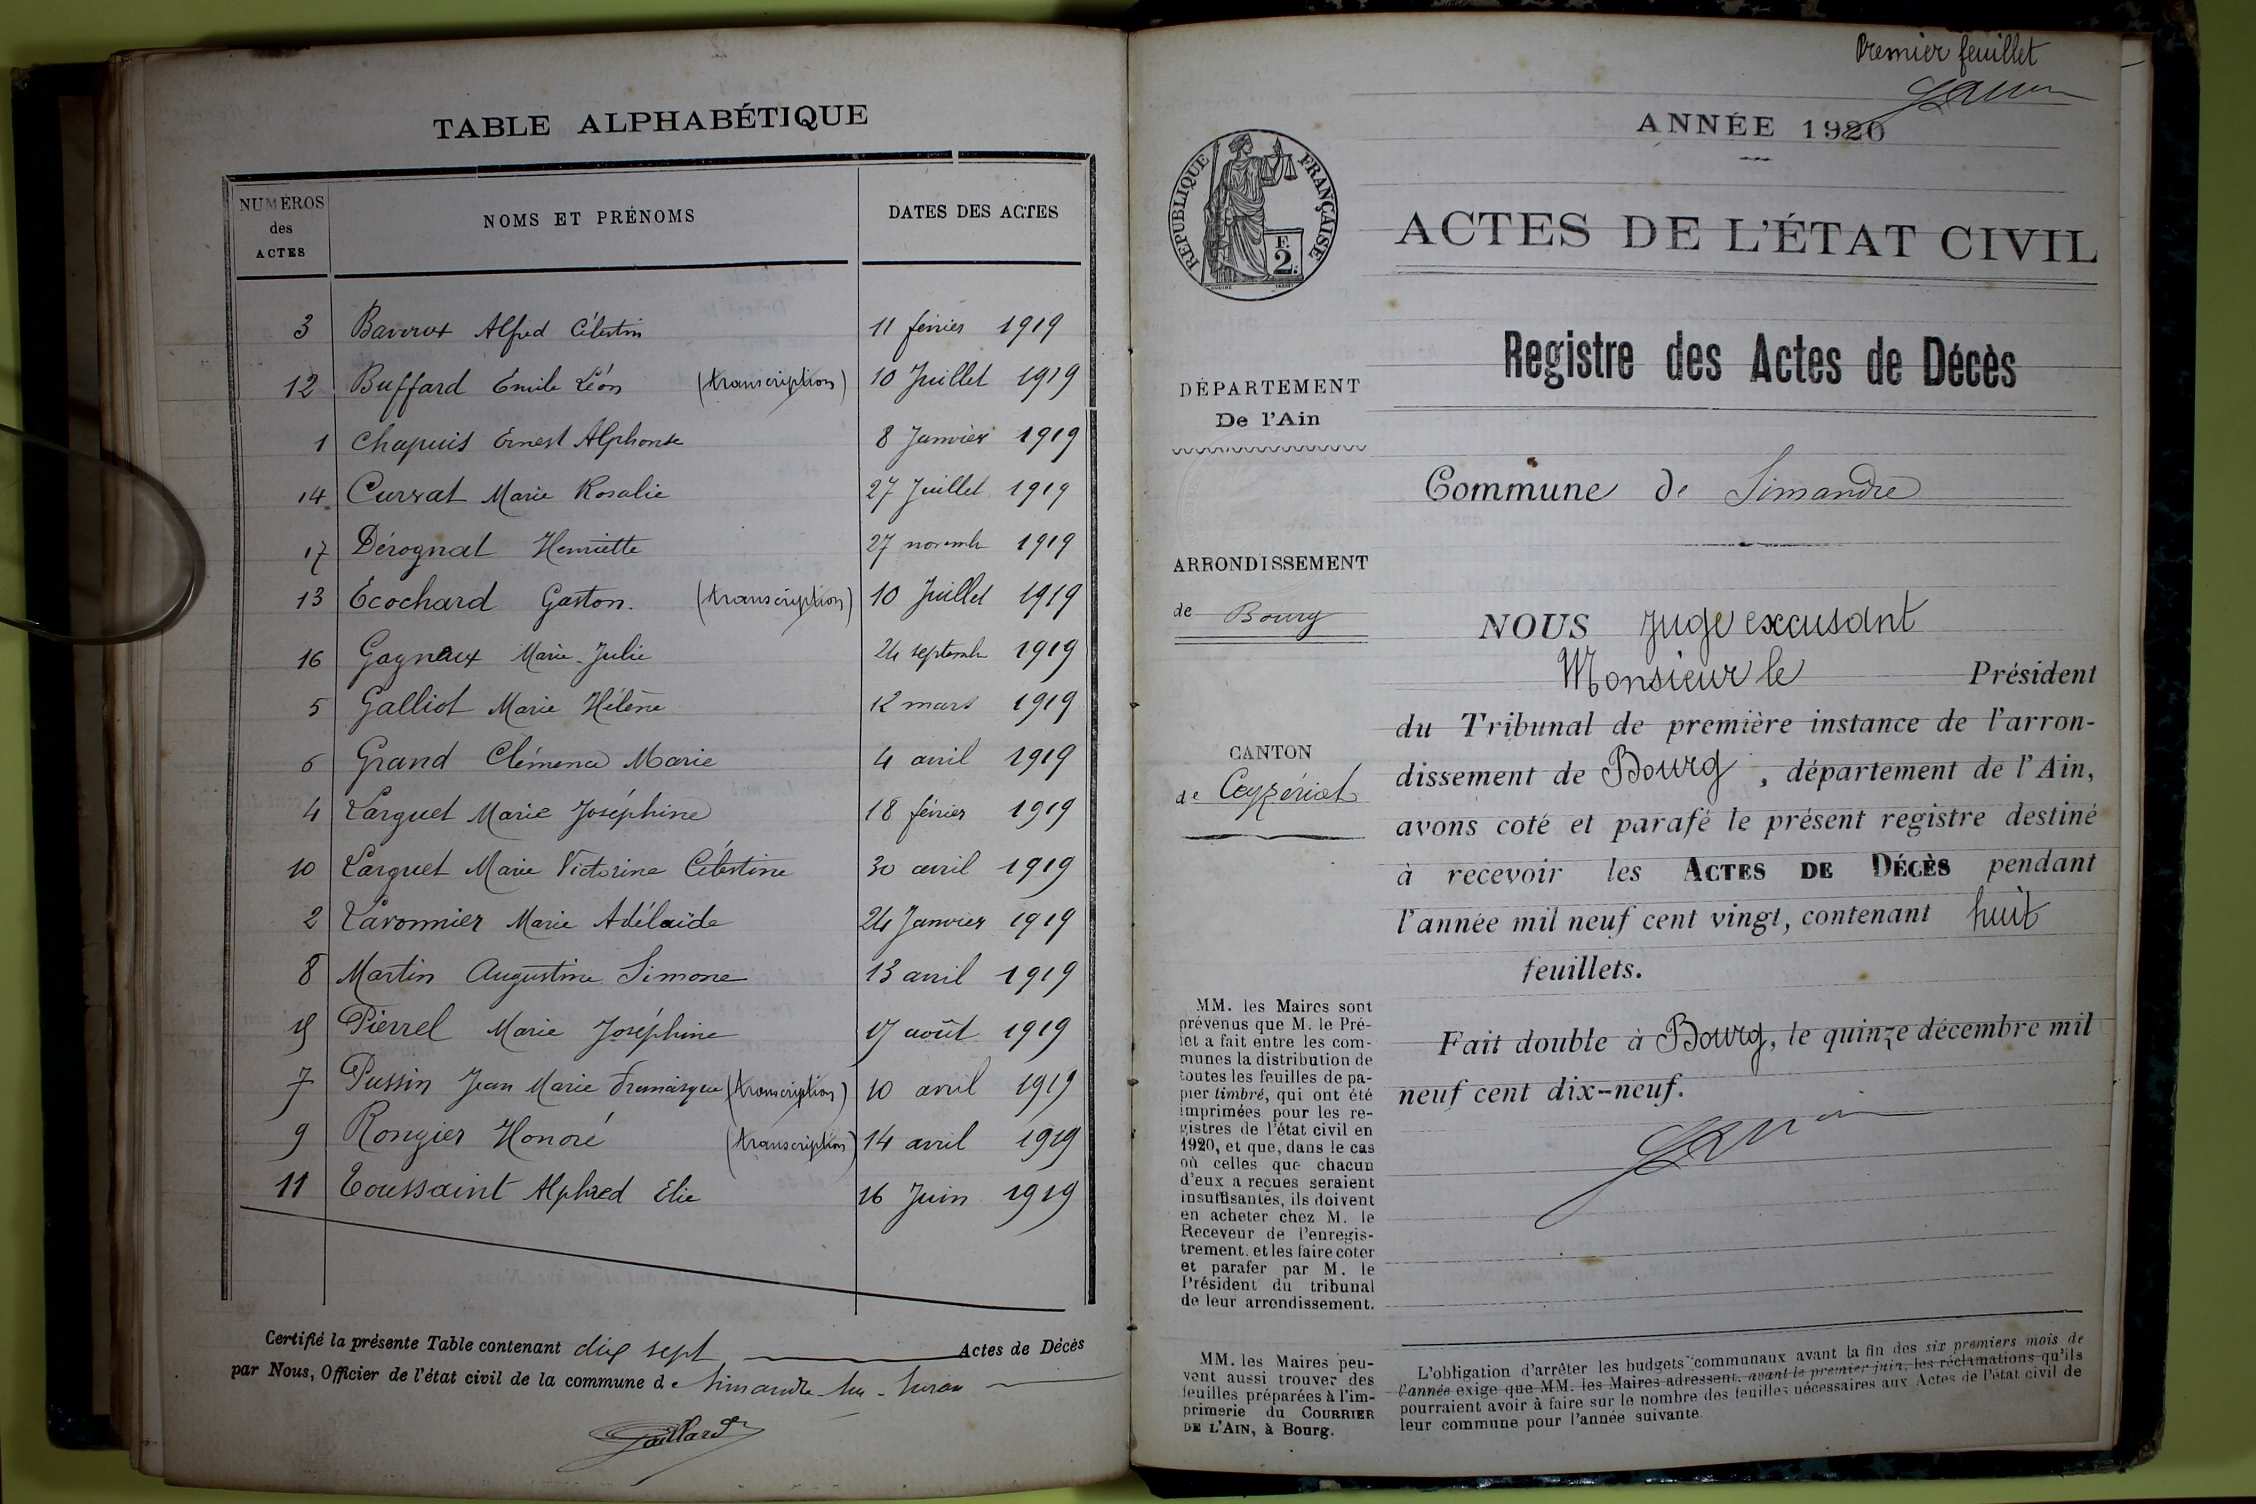 TABLE ALPHABÉTIQUE
NUMÉROS des ACTES NOMS ET PRÉNOMS DATES DES ACTES
3 Alfred Célestin 11 février 1919
12 Buffard Emile Léon (transcription) 10 Juillet 1919
1 Chapuis Ernest Alphonse 8 Janvier 1919
14 Curvat Marie Rosalie 27 Juillet 1919
17 Dérognat Henriette 27 novemb 1919
13 Ecochard Gaston. (transcription) 10 Juillet 1919
16 Gagneux Marie Julie 24 septemb 1919
5 Galliot Marie Hélène 12 mars 1919
6 Grand Clémence Marie 4 avril 1919
4 Larguet Marie Joséphine 18 février 1919
10 Larguet Marie Victorine Célestine 30 avril 1919
2 Lavonnier Marie Adélaïde 24 Janvier 1919
8 Martin Augustine Simone 13 avril 1919
15 Pierrel Marie Joséphine 17 août 1919
7 Pussin Jean Marie (transcription) 10 avril 1919
9 Rongier Honoré (transcription) 14 avril 1919
11 Toussaint Alphred Elie 16 Juin 1919
Certifié la présente Table contenant dix sept Actes de Décès
par Nous, Officier de l'état civil de la commune de Simandre-sur-Suran
Gaillard
Premier feuillet
ANNÉE 1920
RÉPUBLIQUE FRANÇAISE
2 F.
ACTES DE L'ÉTAT CIVIL
Registre des Actes de Décès
DÉPARTEMENT
De l'Ain
Commune de Simandre
ARRONDISSEMENT
de Bourg
CANTON
de Ceyzériat
NOUS Juge excusant
Monsieur le Président
du Tribunal de première instance de l'arron-
dissement de Bourg, département de l'Ain,
avons coté et parafé le présent registre destiné
à recevoir les ACTES DE DÉCÈS pendant
l'année mil neuf cent vingt, contenant huit
feuillets.
Fait double à Bourg, le quinze décembre mil
neuf cent dix-neuf.
MM. les Maires sont
prévenus que M. le Pré-
fet a fait entre les com-
munes la distribution de
toutes les feuilles de pa-
pier timbré, qui ont été
imprimées pour les re-
gistres de l'état civil en
1920, et que, dans le cas
où celles que chacun
d'eux a reçues seraient
insuffisantes, ils doivent
en acheter chez M. le
Receveur de l'enregis-
trement, et les faire coter
et parafer par M. le
Président du tribunal
de leur arrondissement.
MM. les Maires peu-
vent aussi trouver des
feuilles préparées à l'im-
primerie du COURRIER
DE L'AIN, à Bourg.
L'obligation d'arrêter les budgets communaux avant la fin des six premiers mois de
l'année exige que MM. les Maires adressent, avant le premier juin, les réclamations qu'ils
pourraient avoir à faire sur le nombre des feuilles nécessaires aux Actes de l'état civil de
leur commune pour l'année suivante.